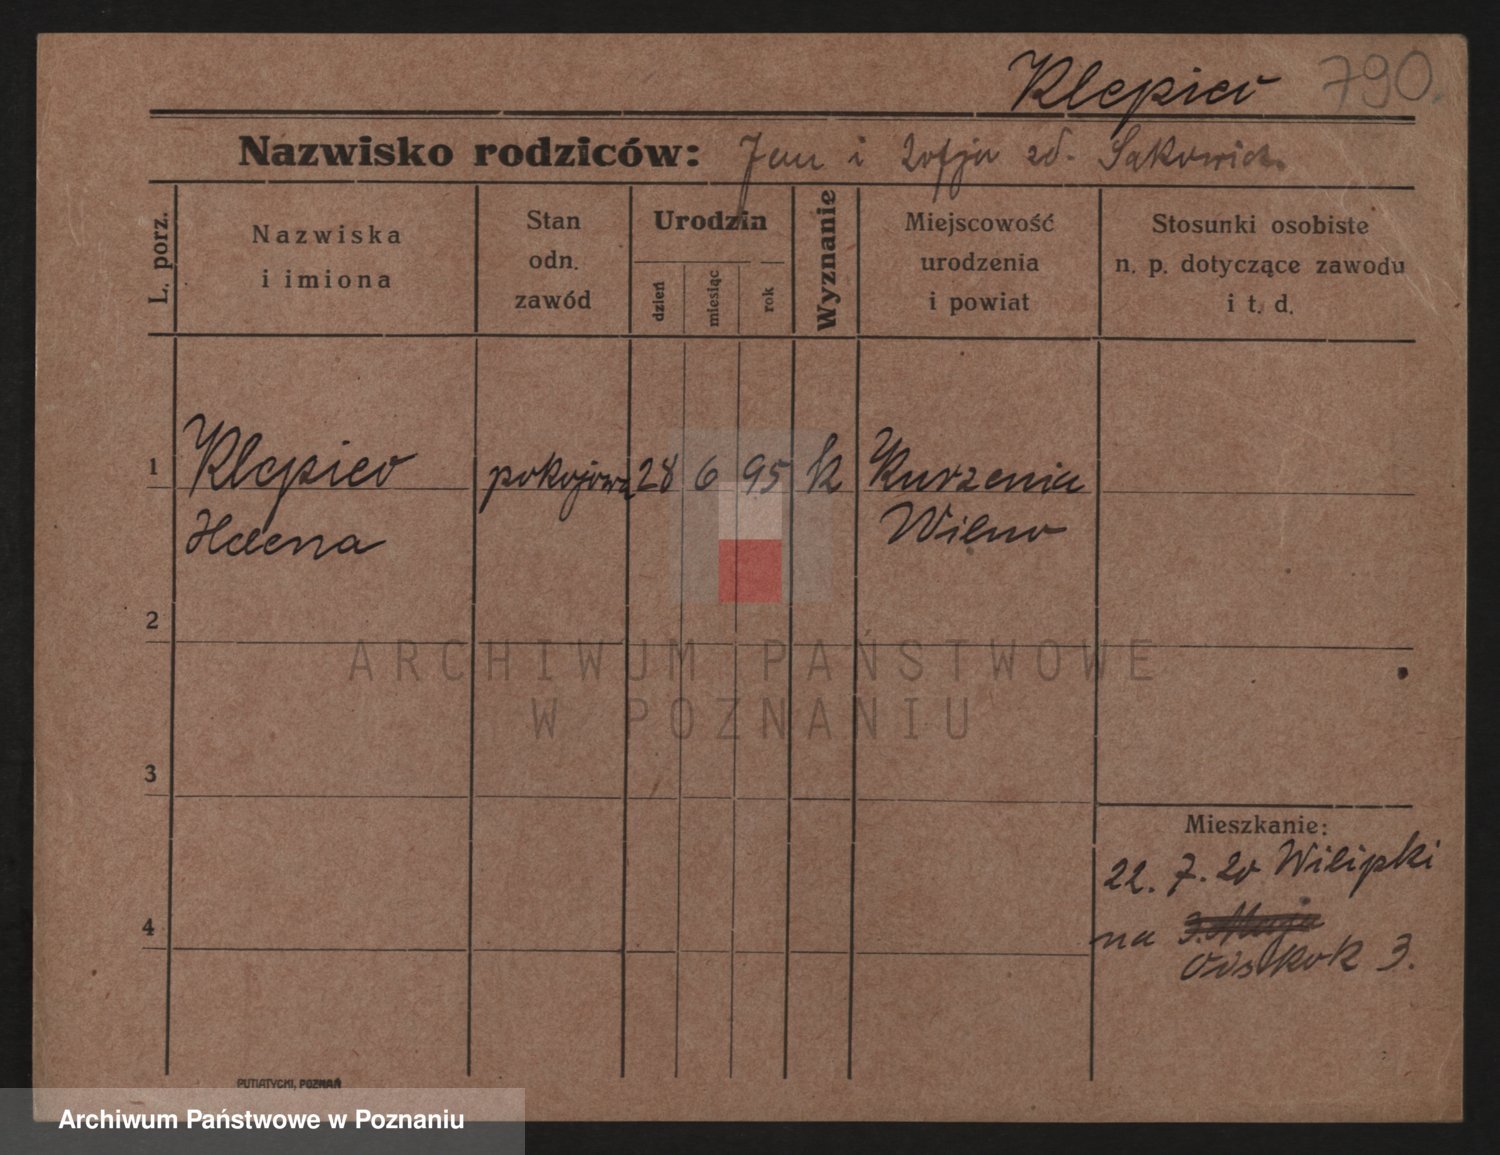 Klepiev 790.
Nazwisko rodziców: Jan i Zofja zd. Sakowicz.
L. porz.
Nazwiska
i imiona
Stan
odn.
zawód
Urodzin
dzień
miesiąc
rok
Wyznanie
Miejscowość
urodzenia
i powiat
Stosunki osobiste
n. p. dotyczące zawodu
i t. d.
1 Klepiev pokojowa 28 6 95 k Kurzenia
Helena Wilno
2
ARCHIWUM PAŃSTWOWE
W POZNANIU
3
Mieszkanie:
22. 7. 20
4
na 3. Maja
3.
PUTIATYCKI, POZNAŃ
Archiwum Państwowe w Poznaniu